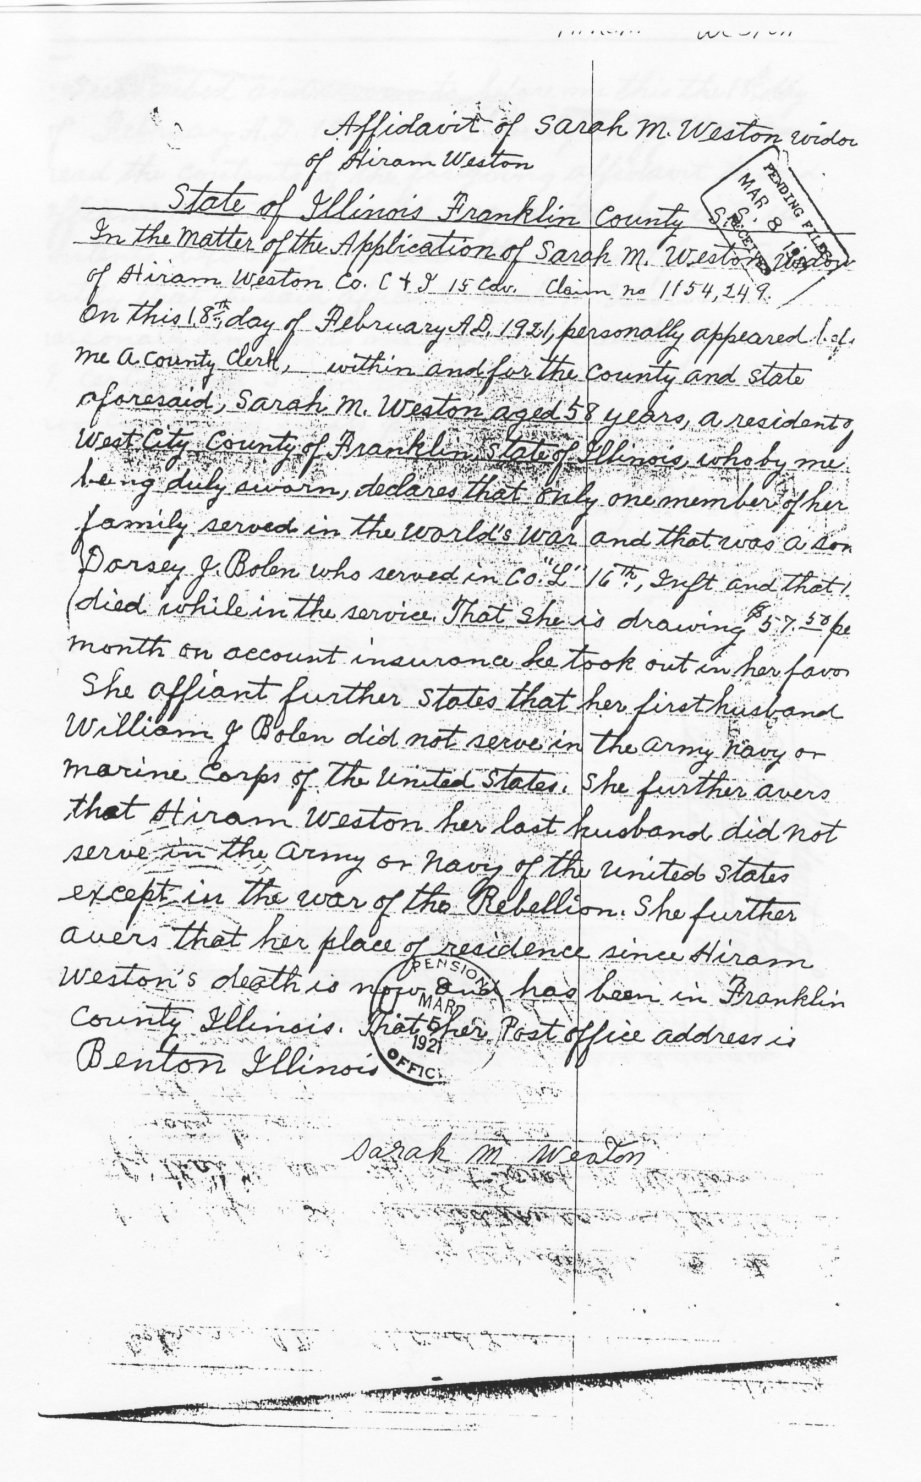 Hiram Weston
Affidavit of Sarah M. Weston widow
of Hiram Weston
State of Illinois Franklin County S.S.
In the Matter of the Application of Sarah M. Weston Widow
of Hiram Weston Co. C & I 15 Cav. Claim no 1154,249.
On this 18th, day of February A.D. 1921, personally appeared bef.
me A. County Clerk, within and for the County and State
aforesaid, Sarah M. Weston aged 58 years, a resident of
West City County of Franklin, State of Illinois, who by me
being duly sworn, declares that only one member of her
family served in the World's War and that was a son
Dorsey J. Bolen who served in Co. "L" 16th, Inft and that
died while in the service. That She is drawing $57.50 pe
month on account insurance he took out in her favor
She affiant further States that her first husband
William J Bolen did not serve in the Army Navy or
Marine Corps of the United States. She further avers
that Hiram Weston her last husband did not
serve in the Army or Navy of the United States
except in the war of the Rebellion. She further
avers that her place of residence since Hiram
Weston's death is now and has been in Franklin
County Illinois. That her Post office address is
Benton Illinois
Sarah M Weston
PENDING FILES
MAR 8
RECEIVED
PENSION
MAR
5
1921
OFFICE